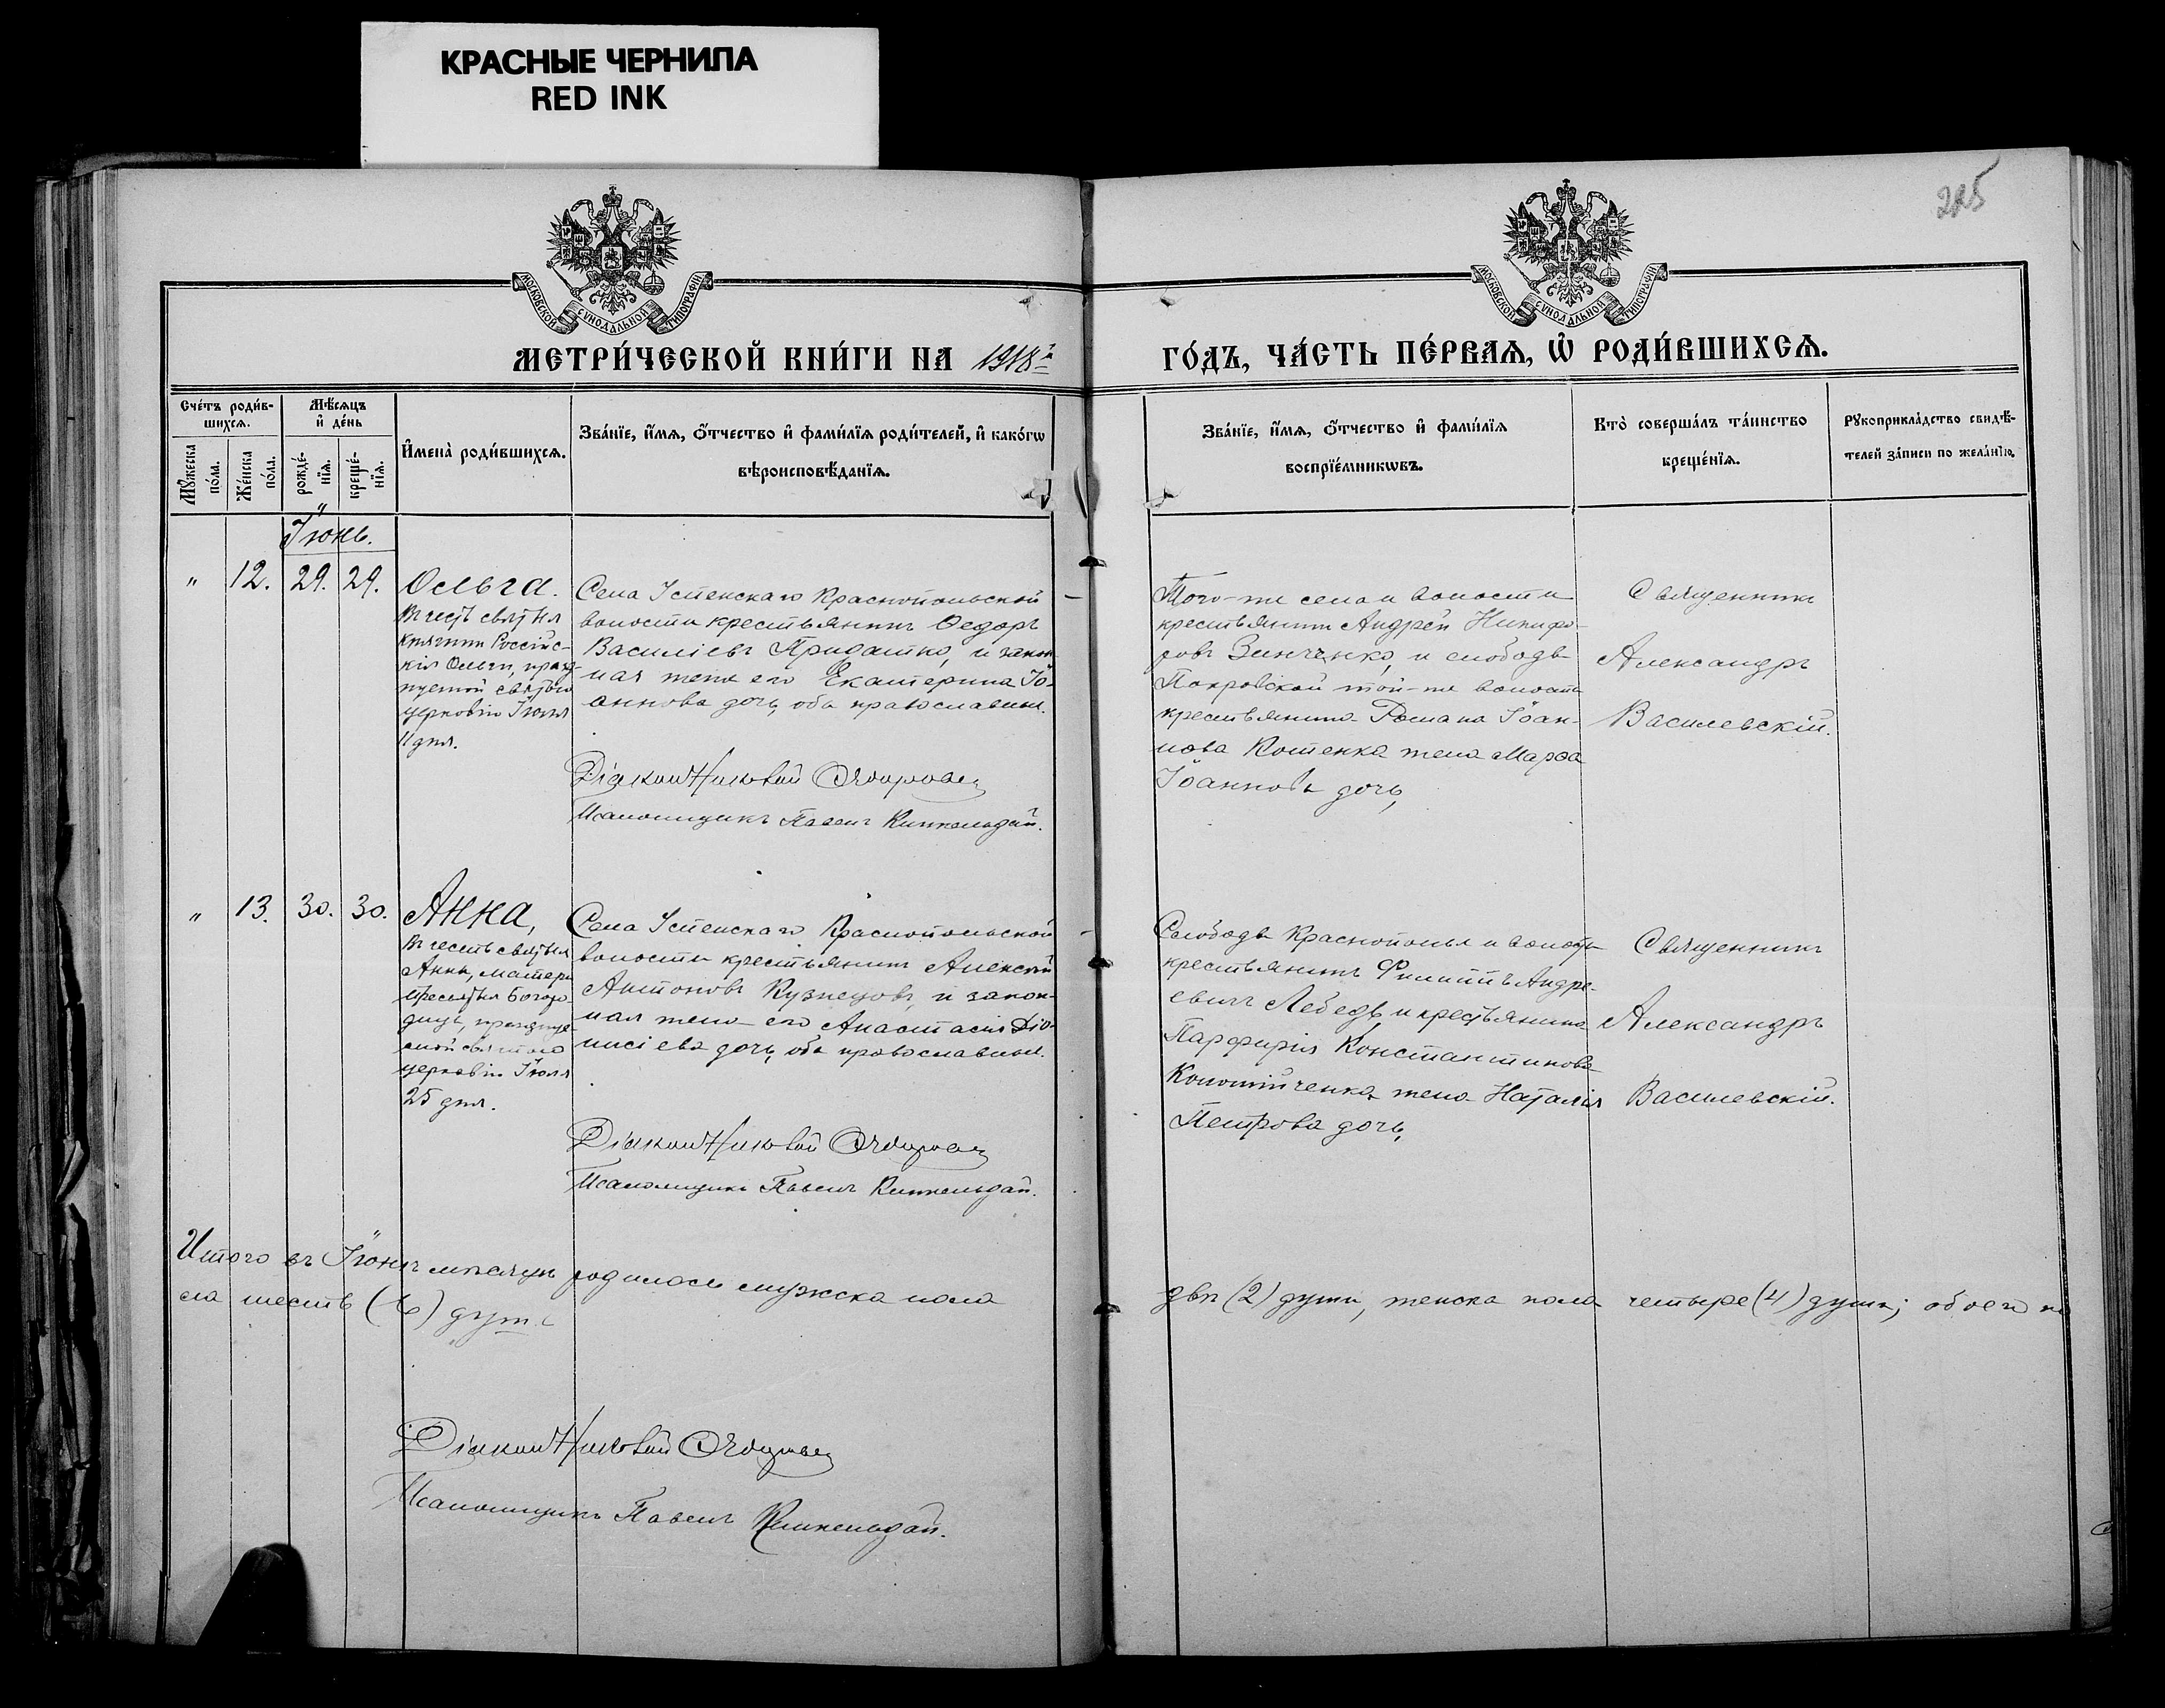 КРАСНЫЕ ЧЕРНИЛА
RED INK
225
МОСКОВСКОЙ СѴНОДАЛЬНОЙ ТИПОГРАФІИ
МОСКОВСКОЙ СѴНОДАЛЬНОЙ ТИПОГРАФІИ
МЕТРИ́ЧЕСКОЙ КНИ́ГИ НА 1918 г.
ГО́ДЪ, ЧА́СТЬ ПЕ́РВАѦ, Ѡ҆ РОДИ́ВШИХСѦ.
Сче́тъ роди́в-
шихсѧ.
Мꙋжеска по́ла.
Же́нска по́ла.
Мѣ́сѧцъ и҆ де́нь
рожде́-нїѧ.
креще́-нїѧ.
И҆мена̀ роди́вшихсѧ.
Зва́нїе, и҆́мѧ, ѻ҆́тчество и҆ фами́лїѧ роди́телей, и҆ како́гѡ
вѣроисповѣ́данїѧ.
Зва́нїе, и҆́мѧ, ѻ҆́тчество и҆ фами́лїѧ
воспрїе́мникѡвъ.
Кто̀ соверша́лъ та́инство
креще́нїѧ.
Рꙋкоприкла́дство свидѣ́-
телей за́писи по жела́нїю.
Іюнь.
" 12. 29. 29.
Ольга.
Въ честь святыя
княгини Россійс-
кія Ольги, празд-
нуемой святою
церковію Іюля
11 дня.
Села Успенскаго Краснопольской
волости крестьянинъ Ѳедоръ
Василіевъ Придатко, и закон-
ная жена его Екатерина Іо-
аннова дочь, оба православные.
Діаконъ
Псаломщикъ Павелъ Кинкельдай.
Того-же села и волости
крестьянинъ Андрей Никифо-
ровъ Зинченко, и слободы
Покровской той-же волости
крестьянина Романа Іоан-
нова Котенка жена Марѳа
Іоаннова дочь,
Священникъ
Александръ
Василевскій.
" 13. 30. 30.
Анна,
Въ честь святыя
Анны, матери
Пресвятыя Богоро-
дицы, празднуе-
мой святою
церковію Іюля
25 дня.
Села Успенскаго Краснопольской
волости крестьянинъ Алексѣй
Антоновъ Кузнецовъ, и закон-
ная жена его Анастасія Діо-
нисіева дочь, оба православные.
Діаконъ
Псаломщикъ Павелъ Кинкельдай.
Слободы Краснополья и волости
крестьянинъ Филиппъ Андре-
евичъ Лебедь и крестьянина
Парфирія Константинова
жена Наталія
Петрова дочь,
Священникъ
Александръ
Василевскій.
Итого въ Іюнѣ мѣсяцѣ родилось мужска пола
двѣ (2) души, женска пола четыре (4) души; обоего по
ла шесть (6) душъ
Діаконъ
Псаломщикъ Павелъ Кинкельдай.